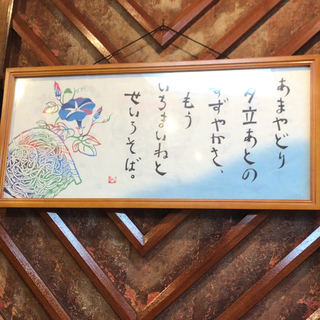 あまやどり
夕立あとの
すずやかさ、
もう
いちまいねと
せいろそば。